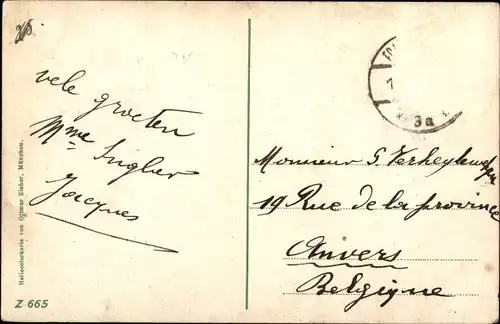 vele groeten
Mme Inglier
Jacques
Monsieur G. Verheyleweghen
19 Rue de la province
Anvers
Belgique
3a
Heliocolorkarte von Ottmar Zieher, München.
Z 665